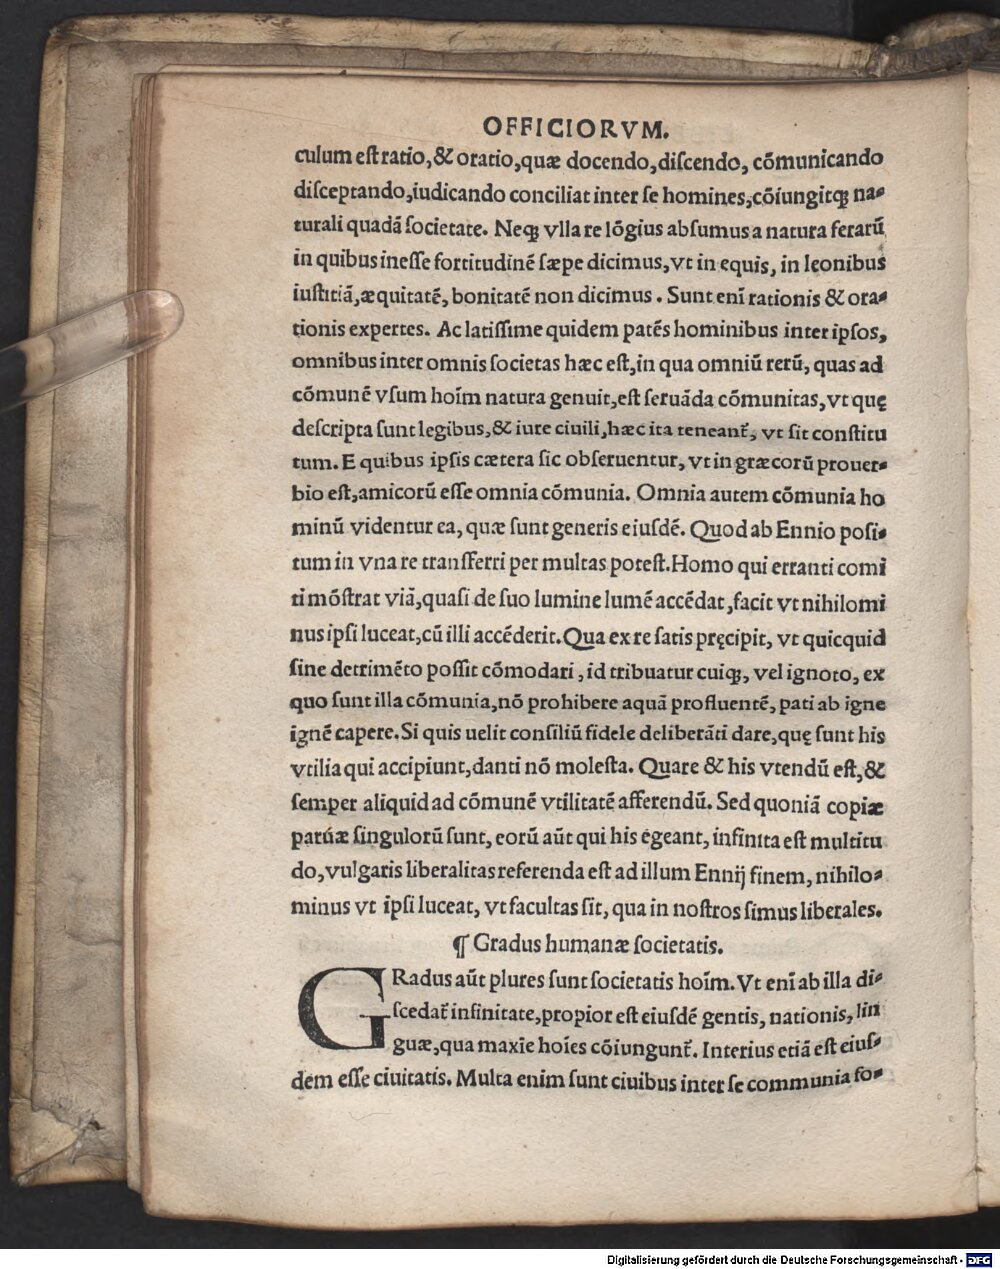 OFFICIORVM.
culum eſt ratio, & oratio, quæ docendo, diſcendo, cõmunicando
diſceptando, iudicando conciliat inter ſe homines, cõiungitqꝫ na-
turali quadã ſocietate. Neqꝫ vlla re lõgius abſumus a natura ferarũ
in quibus ineſſe fortitudinẽ ſæpe dicimus, vt in equis, in leonibus
iuſtitiã, æquitatẽ, bonitatẽ non dicimus. Sunt enĩ rationis & ora-
tionis expertes. Ac latiſſime quidem patẽs hominibus inter ipſos,
omnibus inter omnis ſocietas hæc eſt, in qua omniũ rerũ, quas ad
cõmunẽ vſum hoĩm natura genuit, eſt ſeruãda cõmunitas, vt quę
deſcripta ſunt legibus, & iure ciuili, hæc ita teneant᷑, vt ſit conſtitu
tum. E quibus ipſis cætera ſic obſeruentur, vt in græcorũ prouer-
bio eſt, amicorũ eſſe omnia cõmunia. Omnia autem cõmunia ho
minũ videntur ea, quæ ſunt generis eiuſdẽ. Quod ab Ennio poſi-
tum in vna re tranſferri per multas poteſt. Homo qui erranti comi
ti mõſtrat viã, quaſi de ſuo lumine lumẽ accẽdat, facit vt nihilomi
nus ipſi luceat, cũ illi accẽderit. Qua ex re ſatis pręcipit, vt quicquid
ſine detrimẽto poſſit cõmodari, id tribuatur cuiqꝫ, vel ignoto, ex
quo ſunt illa cõmunia, nõ prohibere aquã profluentẽ, pati ab igne
ignẽ capere. Si quis uelit conſiliũ fidele deliberãti dare, quę ſunt his
vtilia qui accipiunt, danti nõ moleſta. Quare & his vtendũ eſt, &
ſemper aliquid ad cõmunẽ vtilitatẽ afferendũ. Sed quoniã copiæ
paruæ ſingulorũ ſunt, eorũ aũt qui his egeant, infinita eſt multitu
do, vulgaris liberalitas referenda eſt ad illum Ennij finem, nihilo-
minus vt ipſi luceat, vt facultas ſit, qua in noſtros ſimus liberales.
¶ Gradus humanæ ſocietatis.
GRadus aũt plures ſunt ſocietatis hoĩm. Vt enĩ ab illa di-
ſcedat᷑ infinitate, propior eſt eiuſdẽ gentis, nationis, lin
guæ, qua maxĩe hoĩes cõiungunt᷑. Interius etiã eſt eiuſ-
dem eſſe ciuitatis. Multa enim ſunt ciuibus inter ſe communia fo-
Digitalisierung gefördert durch die Deutsche Forschungsgemeinschaft - DFG